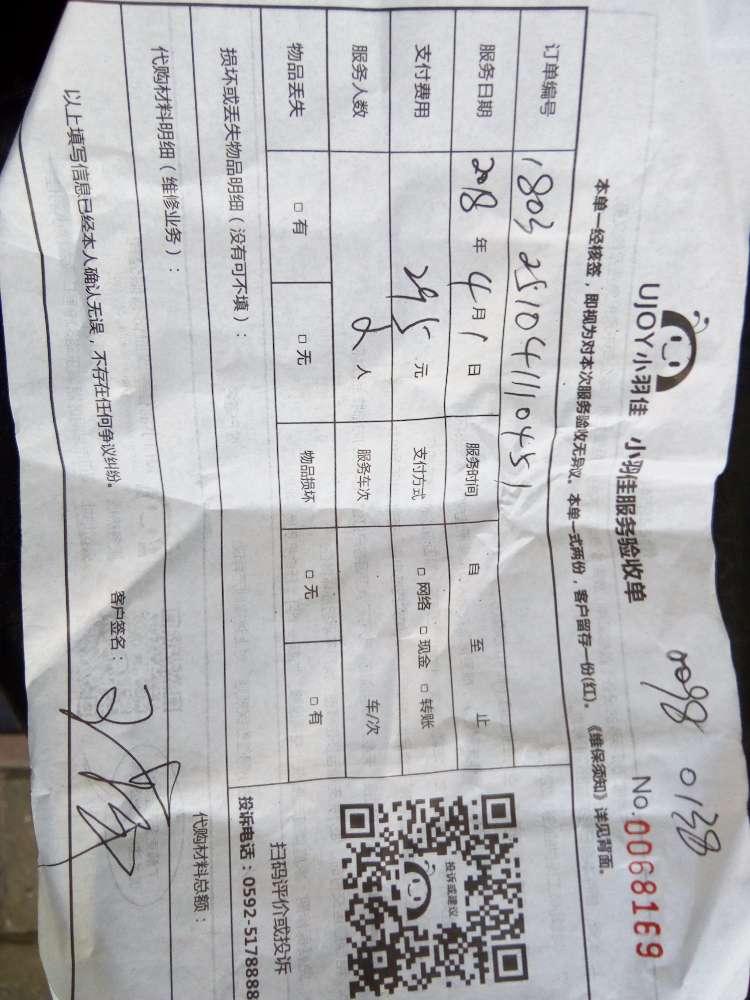 0098 0138
UJOY小羽佳 小羽佳服务验收单 No.0068169
本单一经核签，即视为对本次服务验收无异议。本单一式两份，客户留存一份(红)。《维保须知》详见背面。
订单编号 1803251041110451
服务日期 2018年4月1日 服务时间 自 至 止
支付费用 295元 支付方式 □网络 □现金 □转账
服务人数 2人 服务车次 车/次
物品丢失 □有 □无 物品损坏 □无 □有
损坏或丢失物品明细（没有可不填）：
代购材料明细（维修业务）： 代购材料总额：
以上填写信息已经本人确认无误，不存在任何争议纠纷。 客户签名：
投诉或建议
扫码评价或投诉
投诉电话：0592-5178888